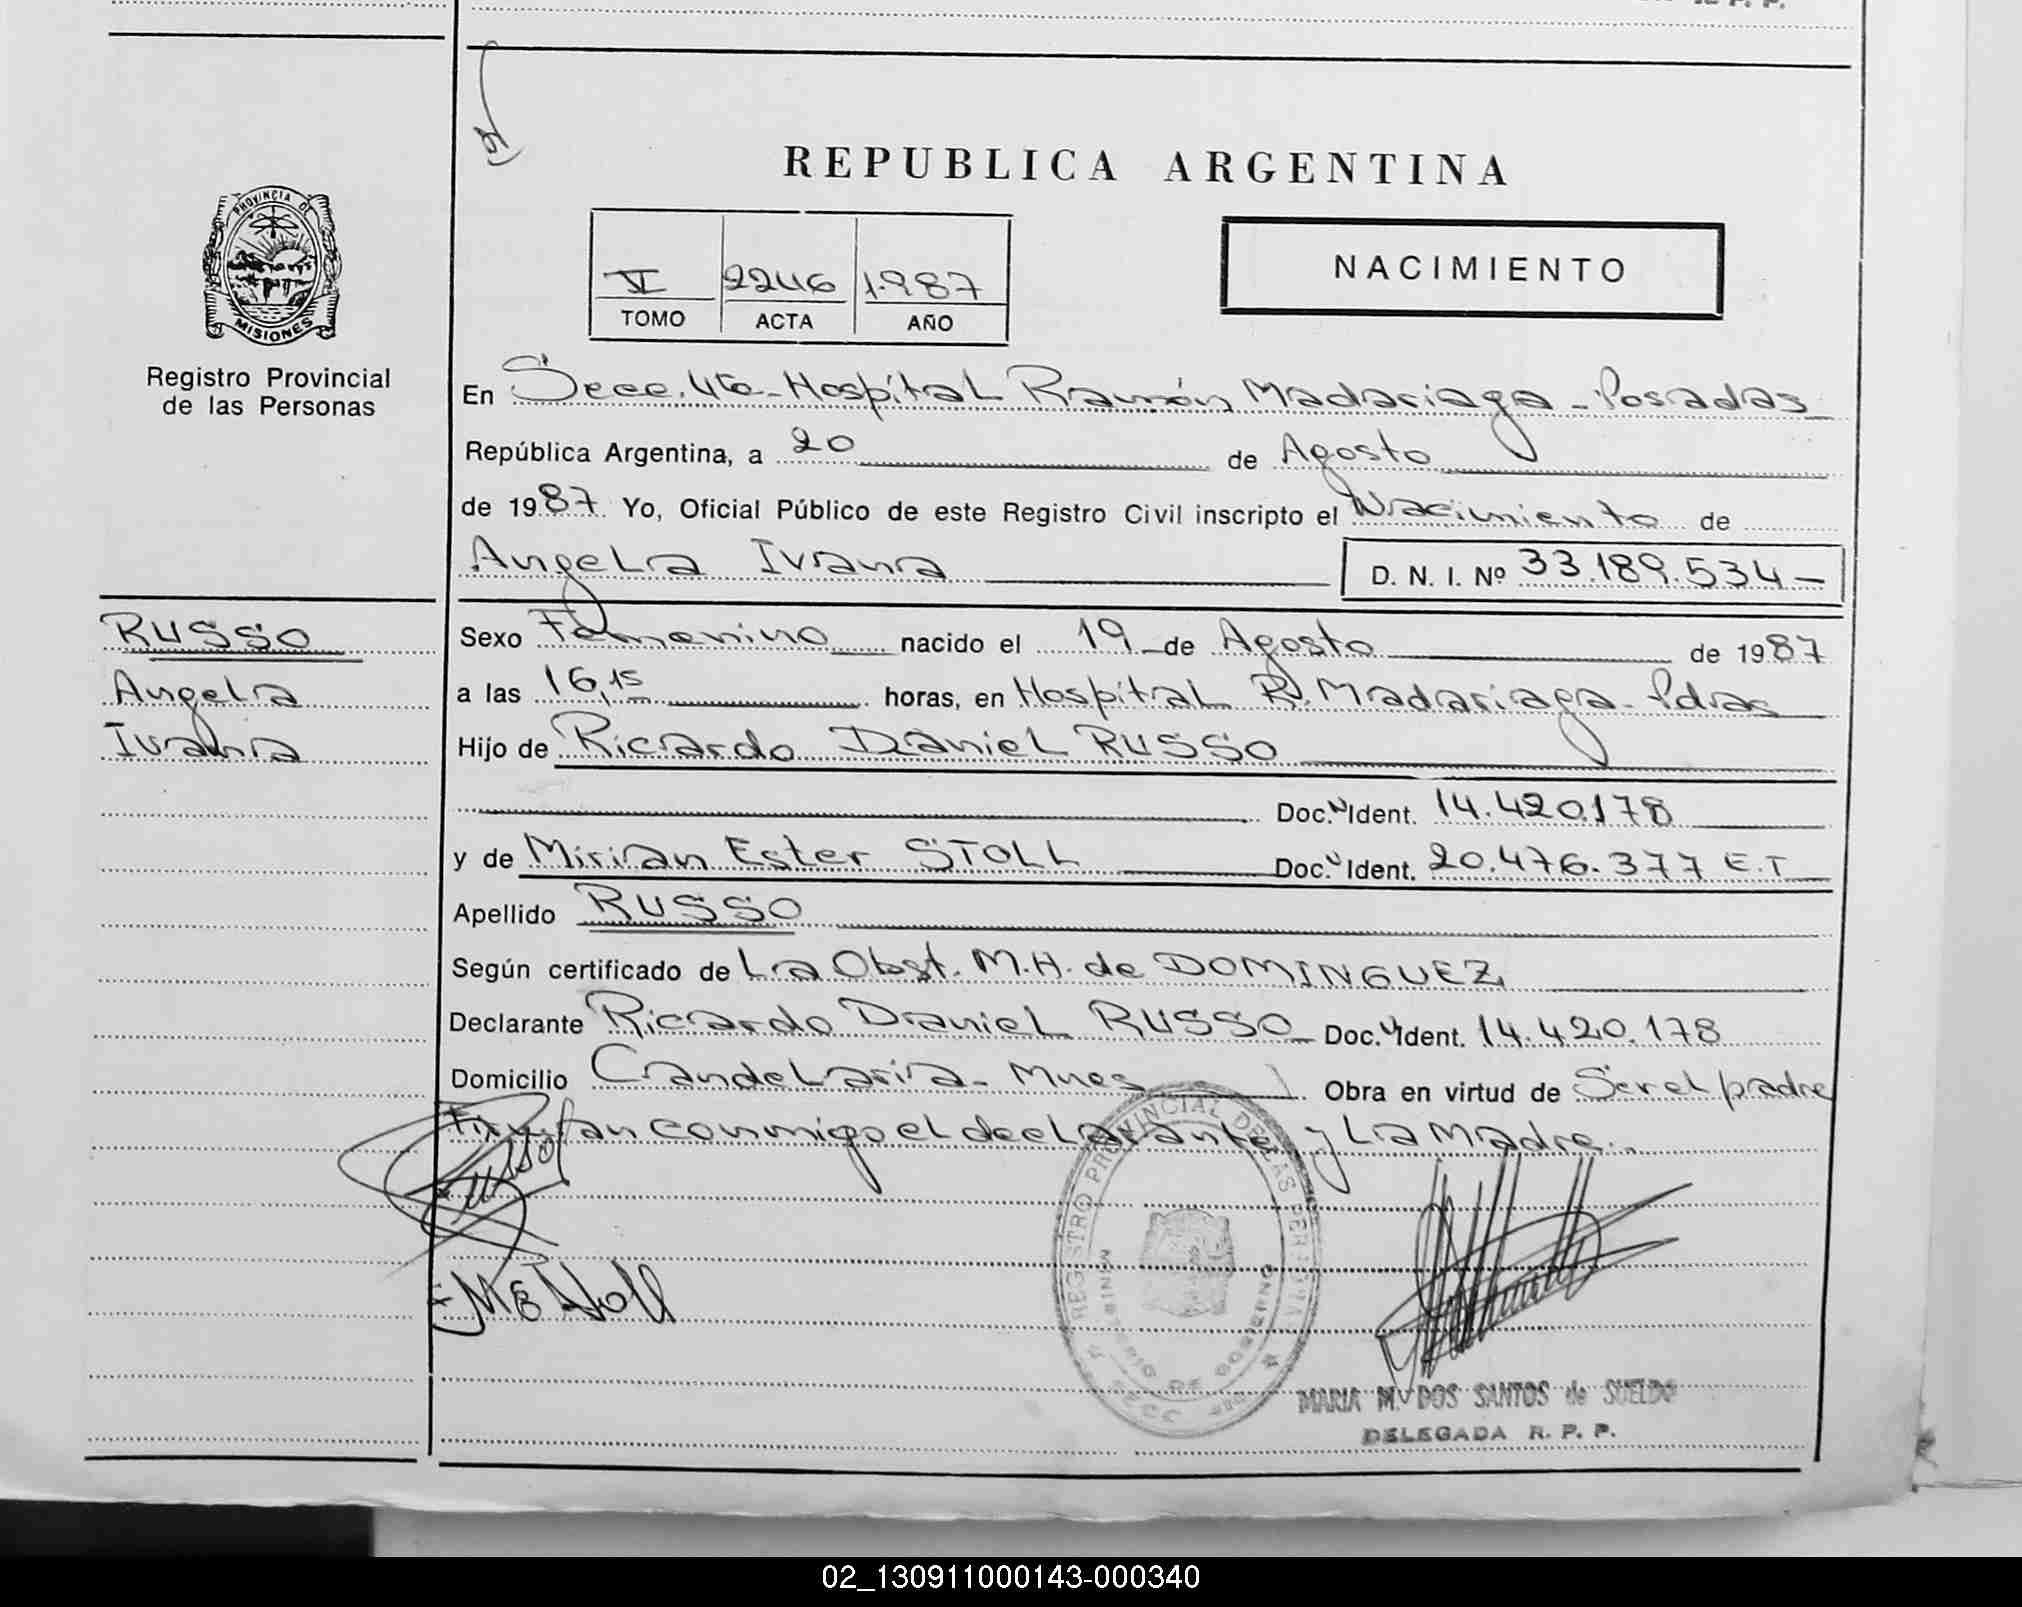 REPUBLICA ARGENTINA
PROVINCIA DE
MISIONES
Registro Provincial
de las Personas
V 2246 1.987
TOMO ACTA AÑO
NACIMIENTO
En Secc. 4ta- Hospital Ramón Madariaga - Posadas
República Argentina, a 20 de Agosto
de 1987. Yo, Oficial Público de este Registro Civil inscripto el Nacimiento de
Angela Ivana D. N. I. Nº 33.189.534-
RUSSO
Angela
Ivana
Sexo Femenino nacido el 19 de Agosto de 1987
a las 16,15 horas, en Hospital R. Madariaga - Pdas
Hijo de Ricardo Daniel RUSSO
Doc. N Ident. 14.420.178
y de Mirian Ester STOLL Doc. N Ident. 20.476.377 E.T
Apellido RUSSO
Según certificado de La Obst. M.H. de DOMINGUEZ
Declarante Ricardo Daniel RUSSO Doc. N Ident. 14.420.178
Domicilio Candelaria - Mnes Obra en virtud de Ser el padre
Firman conmigo el declarante y La Madre.
Russo
M E Stoll
REGISTRO PROVINCIAL DE LAS PERSONAS
MINISTERIO DE GOBIERNO
MARIA M. DOS SANTOS de SUELDO
DELEGADA R. P. P.
02_130911000143-000340